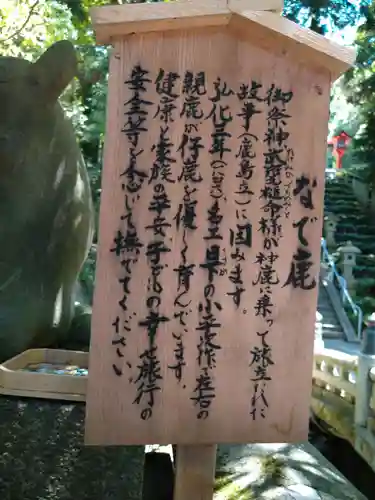 なで鹿
御祭神武甕槌命様が神鹿に乗って旅立たれた
故事(鹿島立)に因みます。
弘化三年
名工
の小
作で左右
親鹿が仔鹿を優しく育んでいます。
健康と家族の平安子どもの幸せ旅行の
安全等を念じて撫でてください